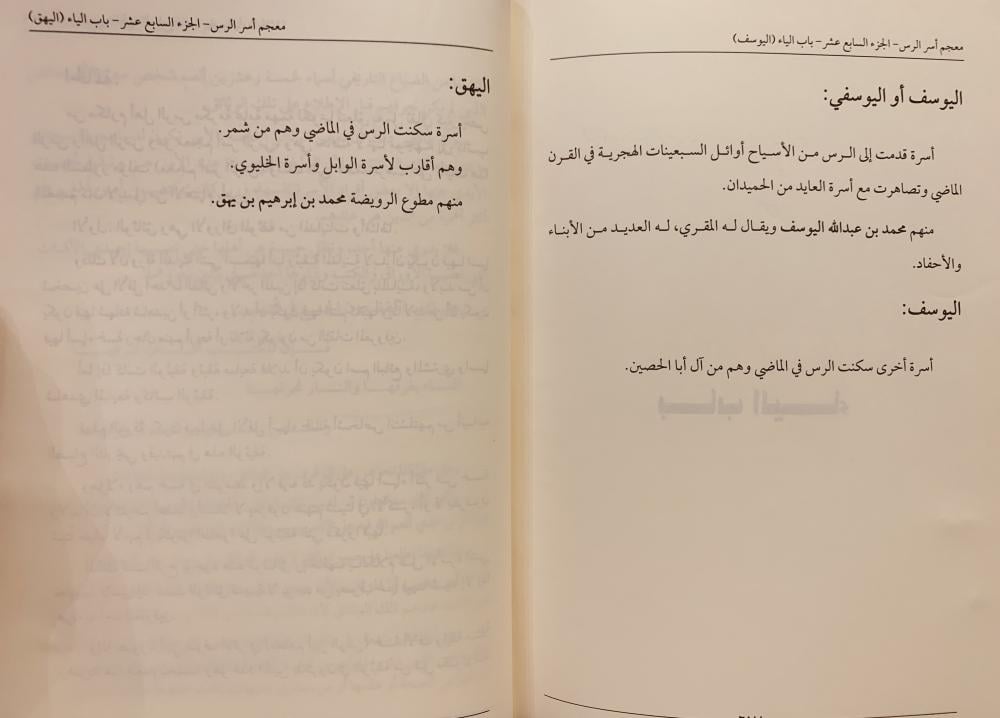 معجم أسر الرس- الجزء السابع عشر- باب الياء (اليوسف)
اليوسف أو اليوسفي:
أسرة قدمت إلى الرس من الأسياح أوائل السبعينات الهجرية في القرن
الماضي وتصاهرت مع أسرة العايد من الحميدان.
منهم محمد بن عبدالله اليوسف ويقال له المقري، له العديد من الأبناء
والأحفاد.
اليوسف:
أسرة أخرى سكنت الرس في الماضي وهم من آل أبا الحصين.
معجم أسر الرس- الجزء السابع عشر- باب الياء (اليهق)
اليهق:
أسرة سكنت الرس في الماضي وهم من شمر.
وهم أقارب لأسرة الوابل وأسرة الخليوي.
منهم مطوع الرويضة محمد بن إبرهيم بن يهق.